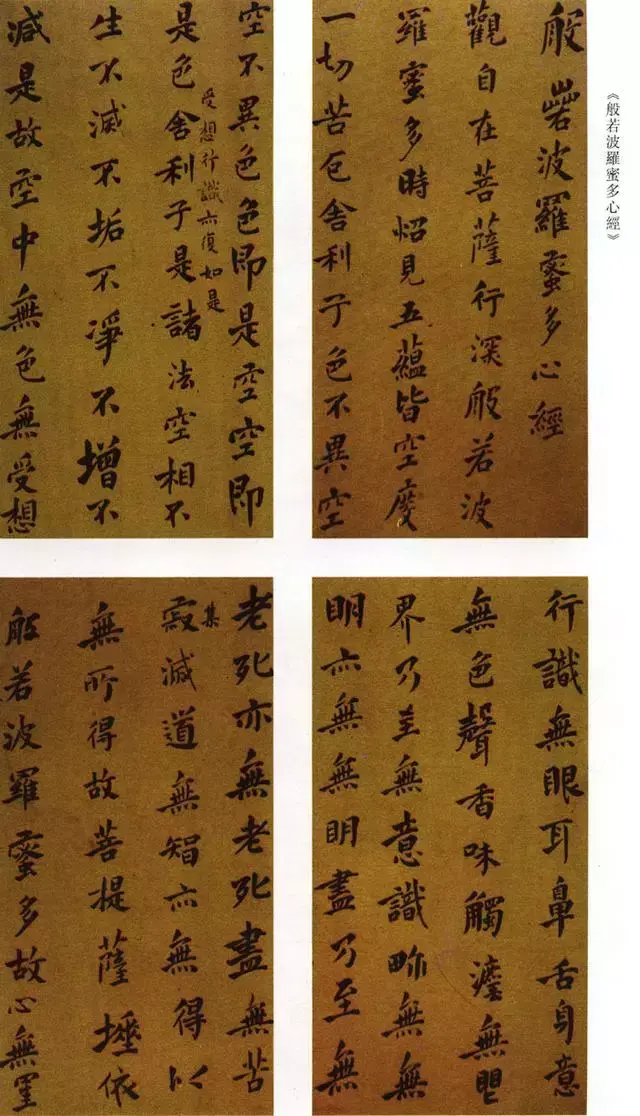 《般若波羅蜜多心經》
般若波羅蜜多心經
觀自在菩薩行深般若波
羅蜜多時炤見五蘊皆空度
一切苦厄舍利子色不異空
空不異色色即是空空即
受想行識亦復如是
是色舍利子是諸法空相不
生不滅不垢不淨不增不
減是故空中無色無受想
行識無眼耳鼻舌身意
無色聲香味觸法無眼
界乃至無意識界無無
明亦無無明盡乃至無
老死亦無老死盡無苦
集
寂滅道無智亦無得以
無所得故菩提薩埵依
般若波羅蜜多故心無罣